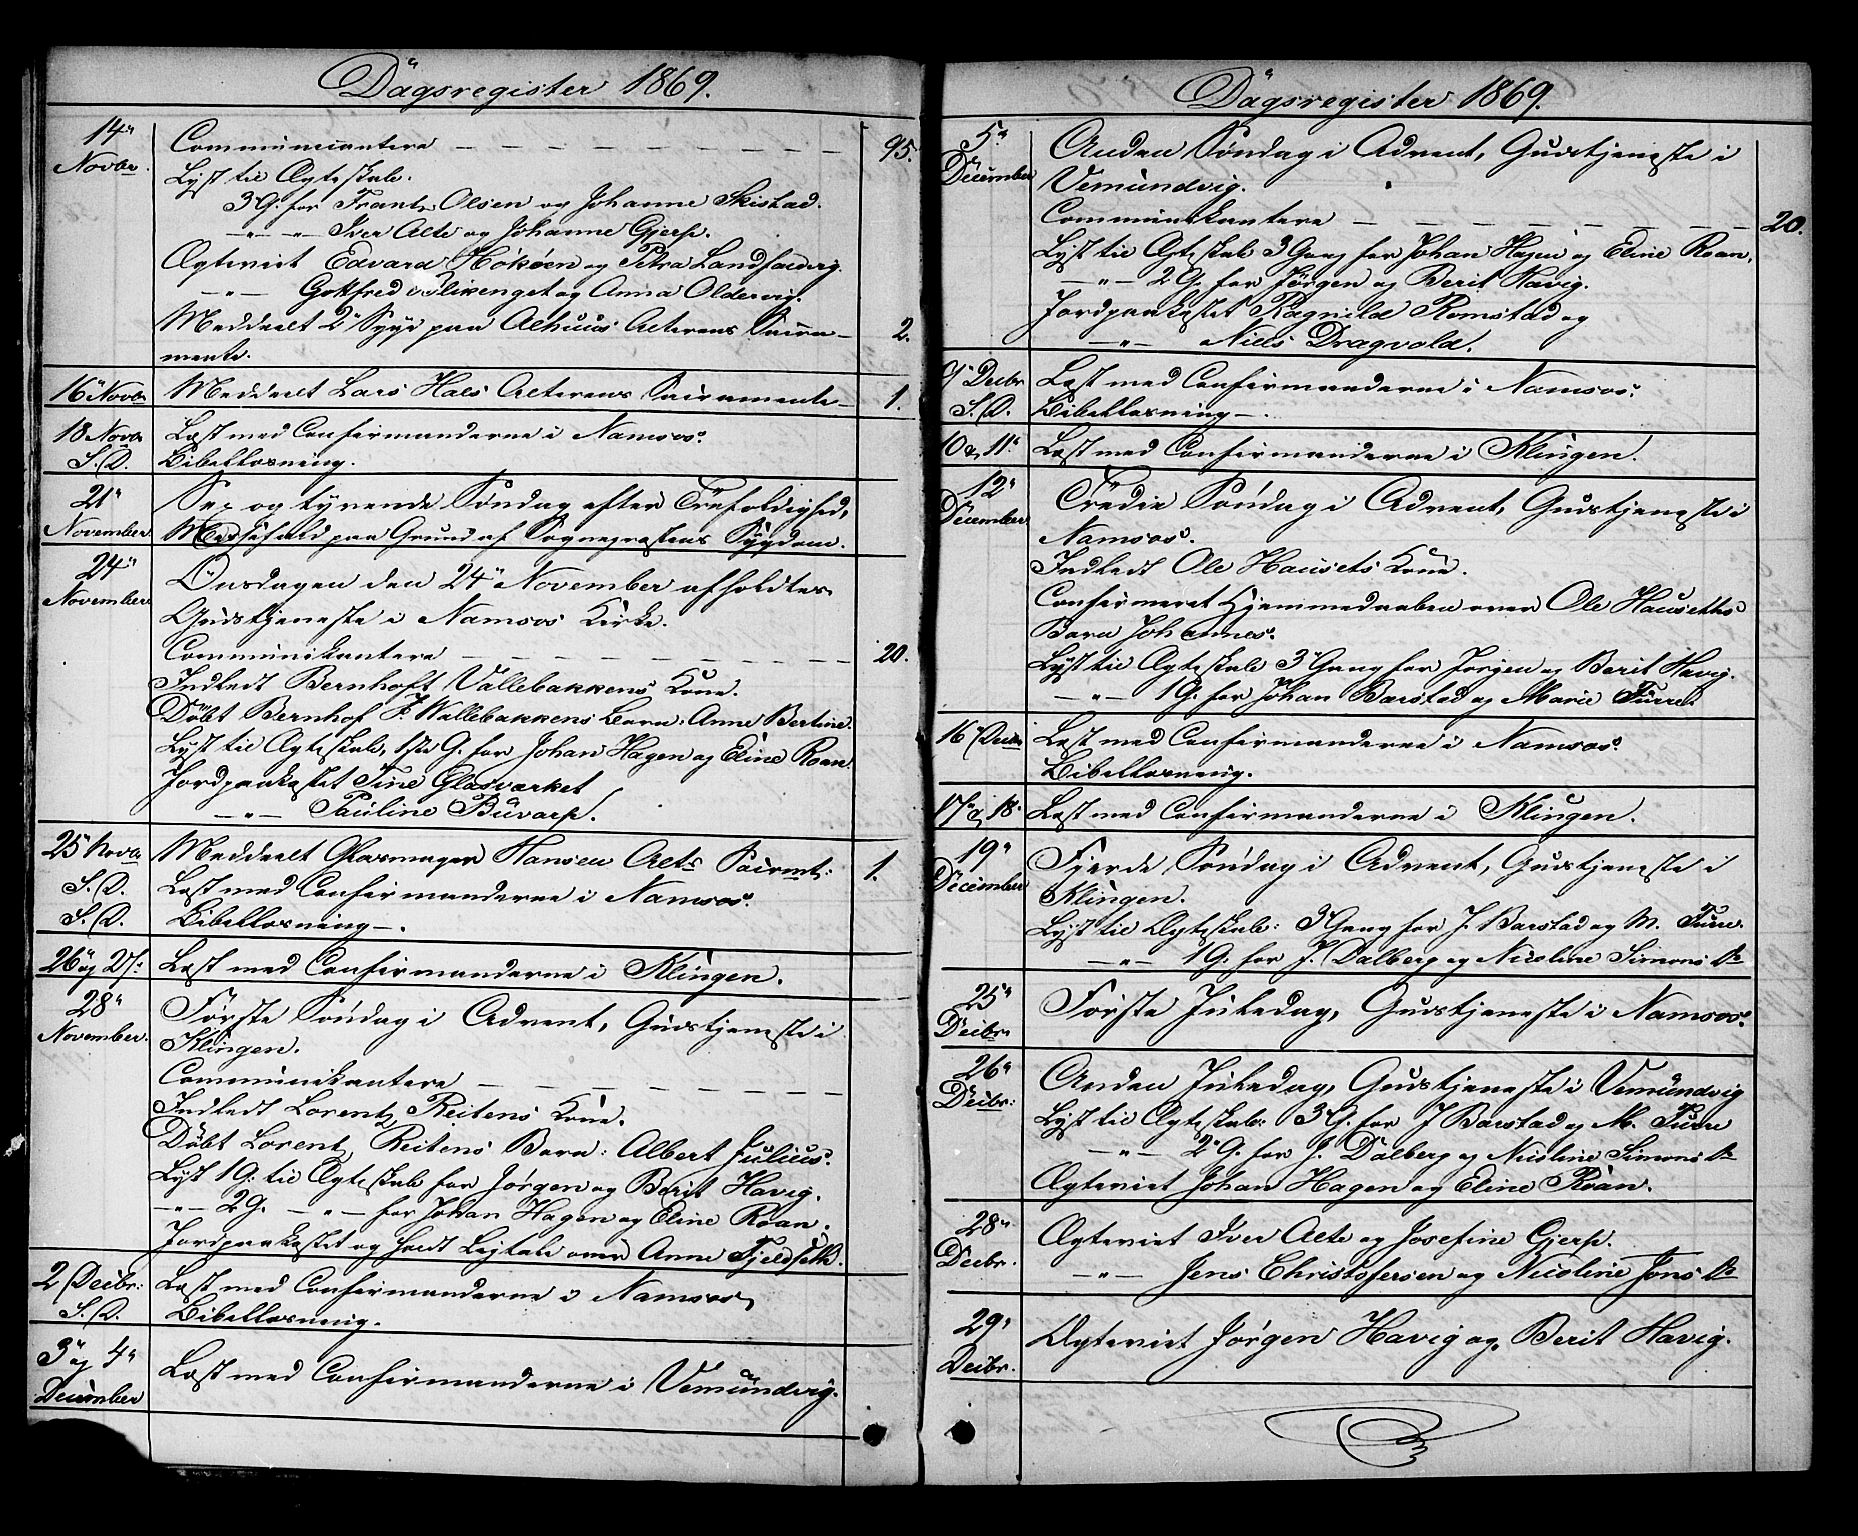 Dagsregister 1869.
14" Communicantere — 95.
Novbr. Lyst til Ægteskab.
3 G. for Frantz Olsen og Johanne Skistad.
—"— " — Iver Alte og Johanne Gjerp.
Ægteviet Edvard Hököen og Petra Landfaldvig.
—"— Gottfred Slixenget og Anna Oldervig.
Meddeelt 2 Syge paa Alhuus Alterens Sacra- 2.
mente.
16" Novbr Meddeelt Lars Hals Alterens Sacramente — 1.
18 Novbr Læst med Confirmanderne i Namsos.
S. D. Bibellæsning.
21" Sex og tyvende Søndag efter Trefoldighed,
November Messefald paa Grund af Sognepræstens Sygdom.
24" Onsdagen den 24" November afholdtes
November Gudstjeneste i Namsos Kirke.
Communikantere — 20.
Indledt Bernhoft Vallebakkens Kone.
Döbt Bernhof J. Wallebakkens Barn: Anne Bertine.
Lyst til Ægteskab, 1ste G. for Johan Hagen og Eline Roan.
Jordpaakastet Tine Glasværket
—"— Pauline Büvarp.
25 Novbr Meddeelt Glasmager Hansen Alts Sacrmt: 1.
S. D. Læst med Confirmanderne i Namsos.
S. D. Bibellæsning —.
26" og 27: Læst med Confirmanderne i Klingen.
28" Første Søndag i Advent, Gudstjeneste i
November. Klingen.
Communikantere —
Indledt Lorentz Reitens Kone.
Döbt Lorentz Reitens Barn: Albert Julius.
Lyst 1 G: til Ægteskab for Jørgen og Berit Havig.
—"— 2 G. —"— for Johan Hagen og Eline Roan.
Jordpaakastet og holdt Ligtale over Anne Fjeldseth.
2 Decbr: Læst med Confirmanderne i Namsos,
S. D. Bibellæsning.
3" og 4" Læst med Confirmanderne i Vemundvig.
December
Dagsregister 1869.
5" Anden Søndag i Advent, Gudstjeneste i
December Vemundvig.
Communikantere — 20.
Lyst til Ægteskab 3 Gang for Johan Hagen og Eline Roan,
—"— 2 G. for Jørgen og Berit Havig.
Jordpaakastet Ragnilde Romstad og
—"— Niels Dragvold.
9" Decbr Læst med Confirmanderne i Namsos.
S. D. Bibellæsning —.
10 og 11" Læst med Confirmanderne i Klingen.
12" Tredie Søndag i Advent, Gudstjeneste i
December Namsos.
Indledt Ole Hausets Kone.
Confirmeret Hjemmedaaben over Ole Hauseths
Barn Johannes.
Lyst til Ægteskab 3 Gang for Jørgen og Berit Havig.
—"— 1 G. for Johan Barstad og Marie Furre.
16 Decbr Læst med Confirmanderne i Namsos.
Bibellæsning.
17" og 18" Læst med Confirmanderne i Klingen.
19" Fjerde Søndag i Advent, Gudstjeneste i
December Klingen.
Lyst til Ægteskab: 3 Gang for J. Barstad og M. Furre.
—"— 1 G. for J. Dalberg og Nicoline Simons Dr
25" Første Juledag, Gudstjeneste i Namsos.
Decbr
26" Anden Juledag, Gudstjeneste i Vemundvig
Decbr: Lyst til Ægteskab: 3 G. for J Barstad og M. Furre
—"— 2 G. for J. Dalberg og Nicoline Simons Dr
Ægteviet Johan Hagen og Eline Roan.
28" Ægteviet Iver Alte og Josefine Gjerp.
Decbr. —"— Jens Christofersen og Nicoline Jons Dr
29" Ægteviet Jørgen Havig og Berit Havig.
Decbr.